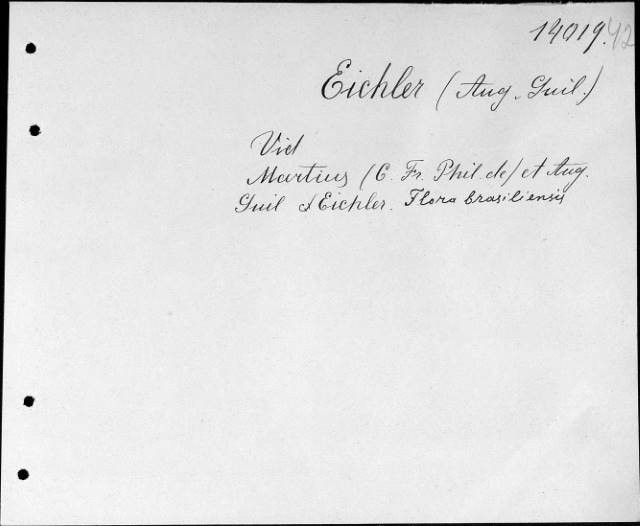 14019.42
Eichler (Aug. Guil.)
Vid
Martius (C. Fr. Phil. de) et Aug.
Guil Eichler. Flora brasiliensis